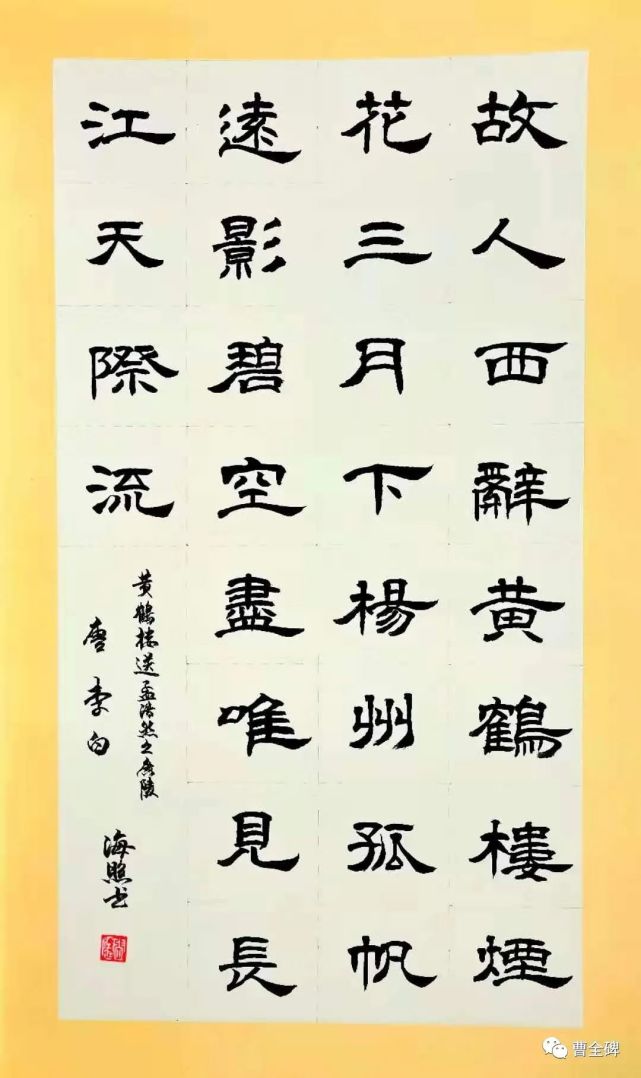 故人西辭黃鶴樓煙
花三月下楊州孤帆
遠影碧空盡唯見長
江天際流
黄鶴楼送孟浩然之廣陵
唐李白
海照书
曹全碑